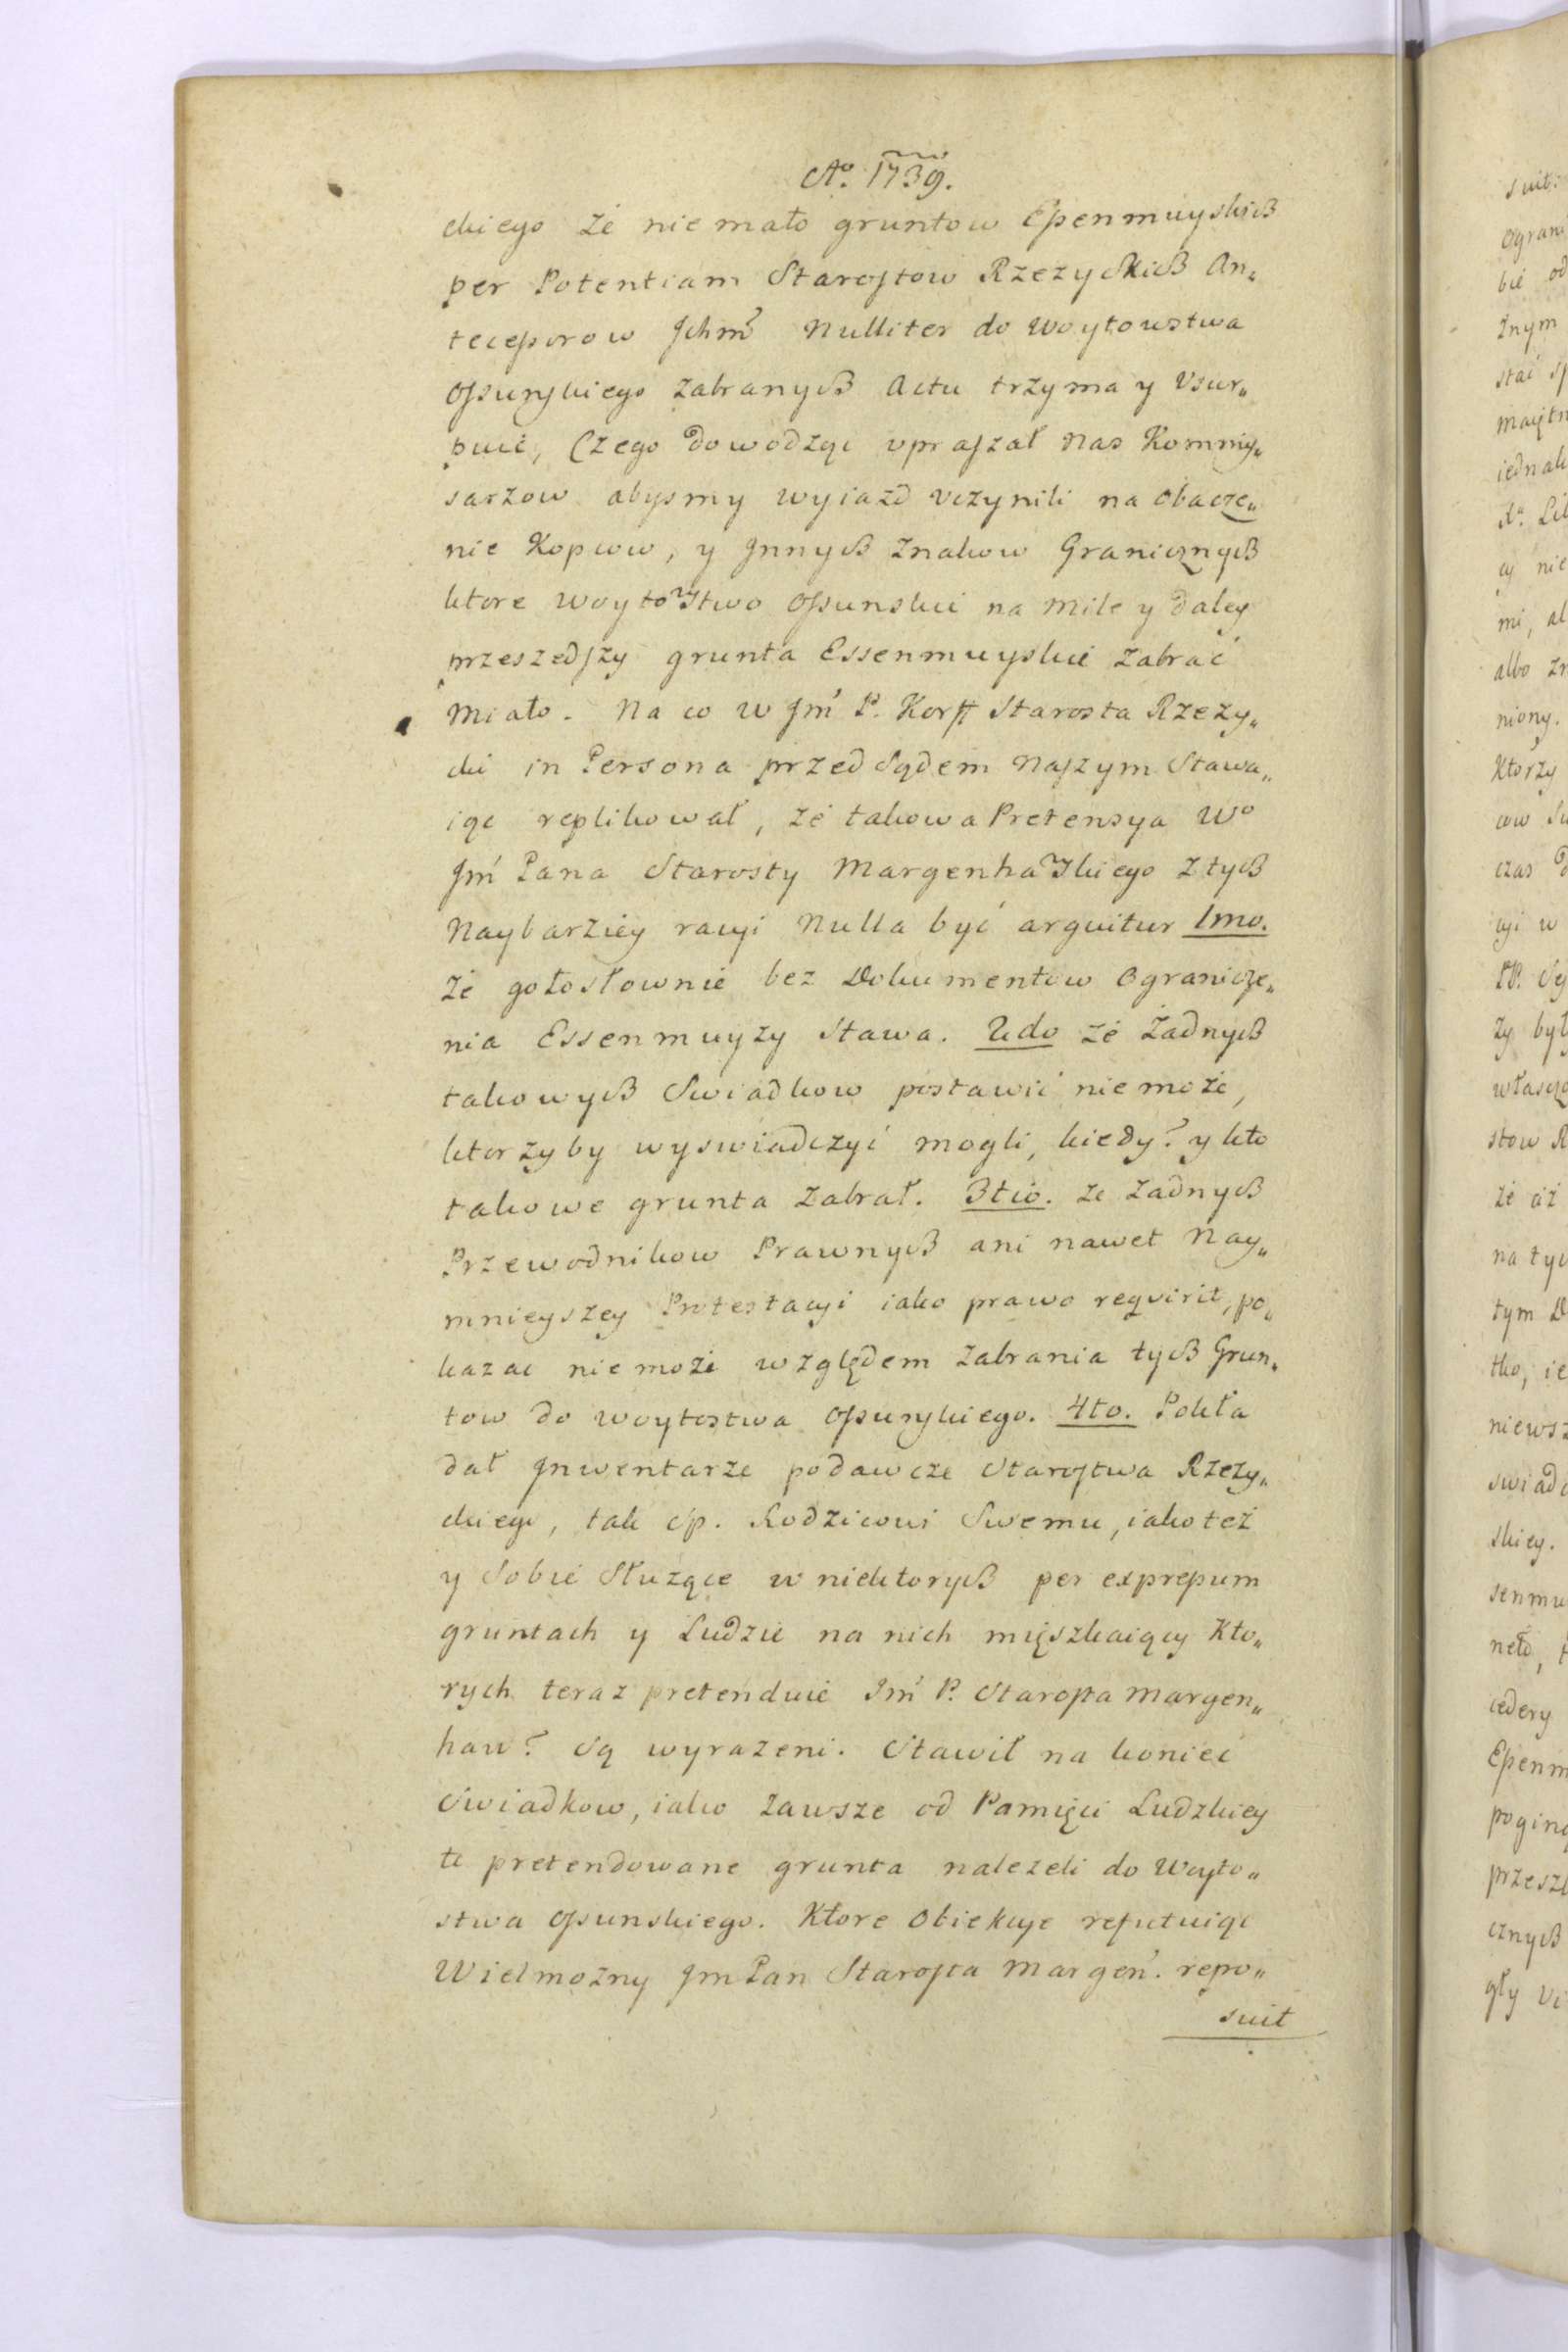 Aº. 1739.
ckiego że nie mało gruntow Essenmuyskich
per Potentiam Starostow Rzezyckich An„
tecessorow Jchm̃ Nulliter do Woytowstwa
Ossunskiego zabranych Actu trzyma y Vsur„
puie, Czego dowodząc vpraszał nas Kommis„
sarzow abysmy wyiazd vczynili na obacze„
nie Kopcow, y Jnnych Znakow Granicznych
ktore woytowstwo Ossunskie na mile y daley
przeszedszy grunta Essenmuyskie zabrać
miało. Na co W Jm̃ P. Korff Starosta Rzezy„
cki in Persona przed Sądem naszym Stawa„
iąc replikował, że takowa Pretensya Wº
Jm̃ Pana Starosty Margenhawskiego z tych
naybarziey racyi Nulla być arguitur 1mo.
że gołosłownie bez Dokumentow Ogranicze„
nia Essenmuyzy Stawa. 2do że żadnych
takowych Swiadkow postawić nie może,
ktorzyby wyswiadczyć mogli, kiedy? y kto
takowe grunta zabrał. 3tio. że żadnych
Przewodnikow Prawnych ani nawet Nay„
mnieyszey Protestacyi iako prawo requirit, po„
kazac nie może względem zabrania tych Grun„
tow do woytostwa Ossunskiego. 4to. Pokła
dał Jnwentarze podawcze Starostwa Rzezy„
ckiego, tak śp. Rodzicowi Swemu, iako też
y Sobie Służące w niektorych per expressum
gruntach y Ludzie na nich mięszkaiący Kto„
rych teraz pretenduie Jm̃ P. Starosta Margen„
haw? są wyrazeni. Stawił na koniec
Swiadkow, iako zawsze od Pamięci Ludzkiey
te pretendowane grunta nalezeli do Woyto„
stwa Ossunskiego. Ktore Obiekcye refutuiąc
Wielmożny Jm Pan Starosta Margeñ. repo„
suit